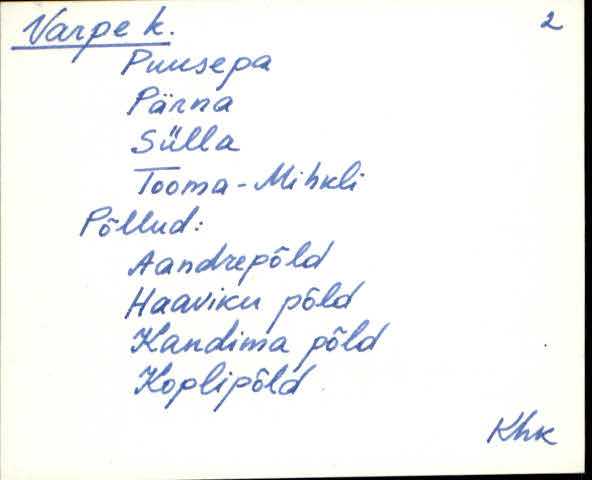 Varpe k. 2
Puusepa
Pärna
Sülla
Tooma-Mihkli
Põllud:
Aandrepõld
Haaviku põld
Kandima põld
Koplipõld
Khk